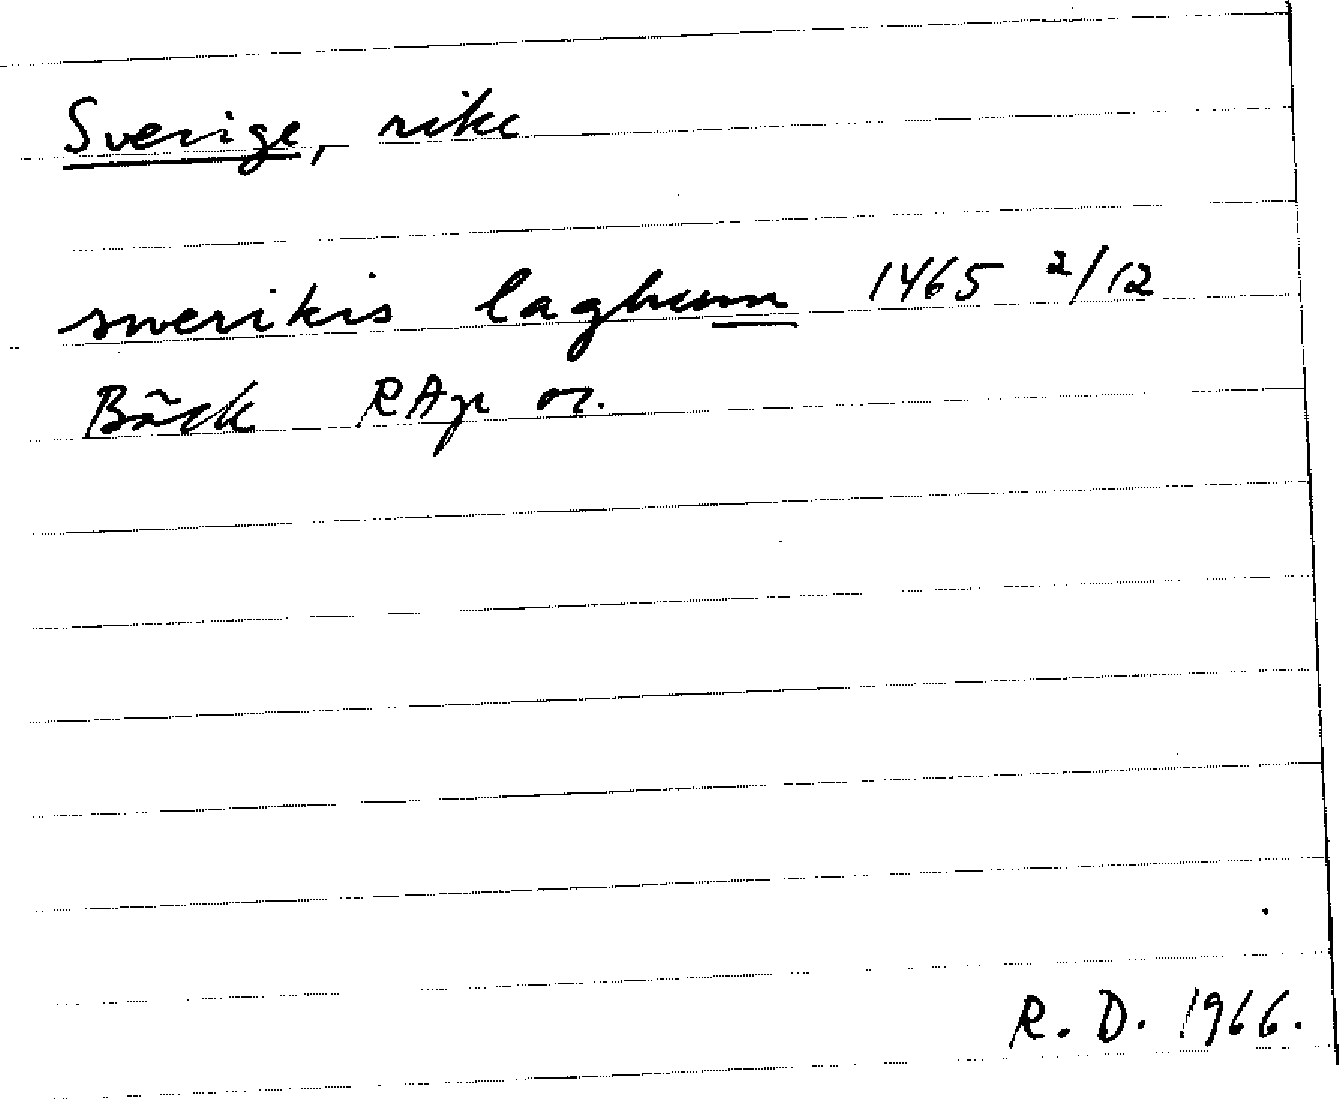 Sverige, rike
swerikis laghum 1465 2/12
Bäck RAp or.
R. D. 1966.